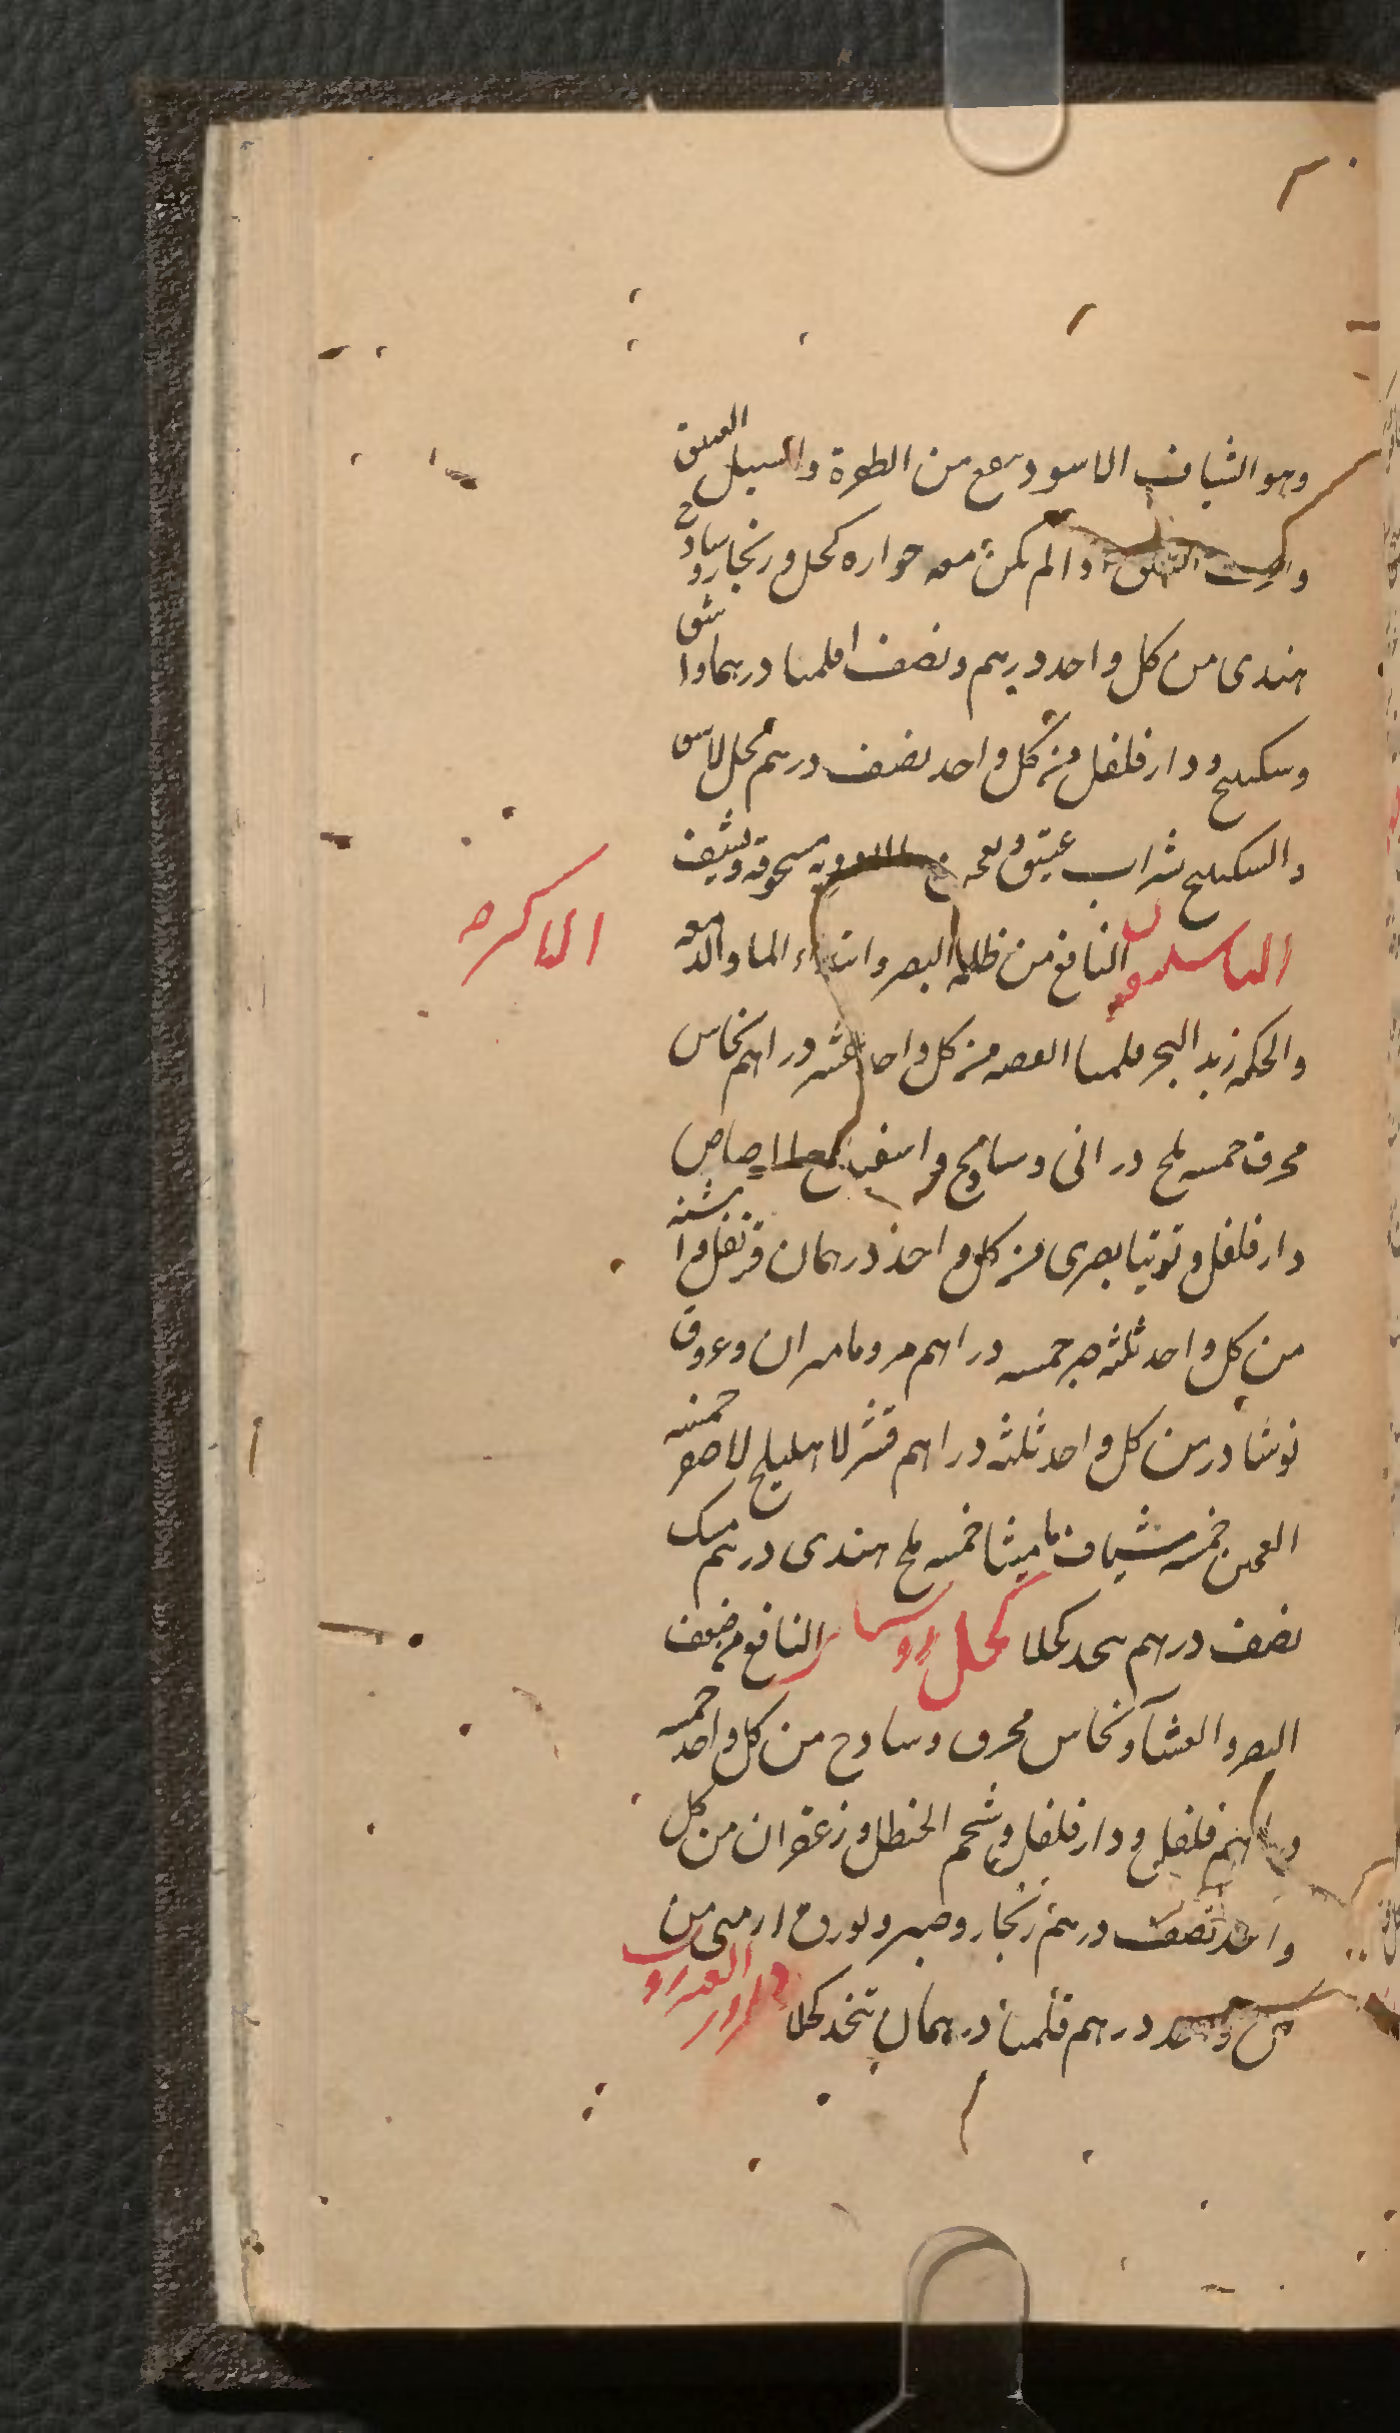 وهو الشياف الاسود ينفع من الطرفة والسبل العتيق
والم يكن معه حرارة كحل وزنجار وسادج
هندى من كل واحد درهم ونصف اقلميا درهما واشق
وسكبينج ودار فلفل من كل واحد نصف درهم يحل الاشق
والسكبينج بشراب عتيق ويعجن الادوية مسحوقة ويشيف
الباسليقون النافع من ظلمة البصر وابتداء الماء والدمعة
الاكره
والحكة زبد البحر قلميا الفضه من كل واحد عشر دراهم نحاس
محرق خمسه ملح درانى وسادج واسفيداج الرصاص
دار فلفل وتوتيا بصرى من كل واحد درهمان قرنفل واشنه
من كل واحد ثلثه صبر خمسه دراهم مر وماميران وعروق
نوشادر من كل واحد ثلثه دراهم قشر الاهليلج الاصفر خمسه
خمسه شياف ماميثا خمسه ملح هندى درهم مسك
نصف درهم يتخذ كحلا كحل روسا النافع من ضعف
البصر والعشا ونحاس محرق وسادج من كل واحد خمسه
دراهم فلفل ودار فلفل وشحم الحنظل وزعفران من كل
واحد نصف درهم زنجار وصبر وبورق ارمنى من
كل واحد درهم قلميا درهمان يتخذ كحلا